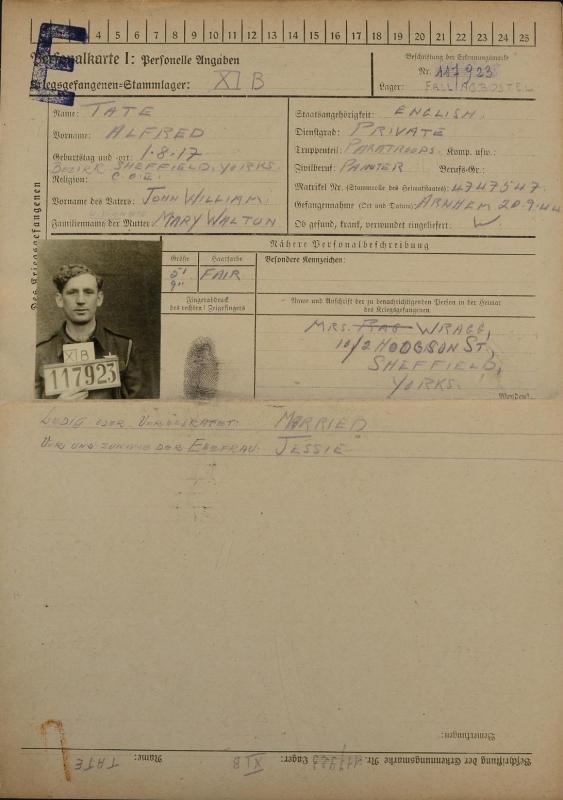 4 5 6 7 8 9 10 11 12 13 14 15 16 17 18 19 20 21 22 23 24 25
Personalkarte I: Personelle Angaben
Kriegsgefangenen-Stammlager: XI B
Beschriftung der Erkennungsmarke
Nr. 117923
Lager: FALLINGBOSTEL
Des Kriegsgefangenen
Name: TATE
Vorname: ALFRED
Geburtstag und -ort: 1.8.17
BEZIRK SHEFFIELD. YORKS.
Religion: C.O.E.
Vorname des Vaters: JOHN WILLIAM.
Familienname der Mutter: MARY WALTON
Staatsangehörigkeit: ENGLISH.
Dienstgrad: PRIVATE
Truppenteil: PARATROOPS. Komp. usw.:
Zivilberuf: PAINTER Berufs-Gr.:
Matrikel Nr. (Stammrolle des Heimatstaates): 4747547.
Gefangennahme (Ort und Datum): ARNHEM 20.9.44
Ob gesund, krank, verwundet eingeliefert: W.
Nähere Personalbeschreibung
Größe
Haarfarbe
Besondere Kennzeichen:
5' 9"
FAIR
Fingerabdruck
des rechten! Zeigefingers
Name und Anschrift der zu benachrichtigenden Person in der Heimat
des Kriegsgefangenen
MRS. WRAGG,
10/2 HODGSON ST,
SHEFFIELD,
YORKS.
Wenden!
XI B
117923
LEDIG ODER VERHEIRATET: MARRIED
VOR UND ZUNAME DER EHEFRAU: JESSIE
Bemerkungen:
Beschriftung der Erkennungsmarke Nr. 117923 Lager: XI B Name: TATE